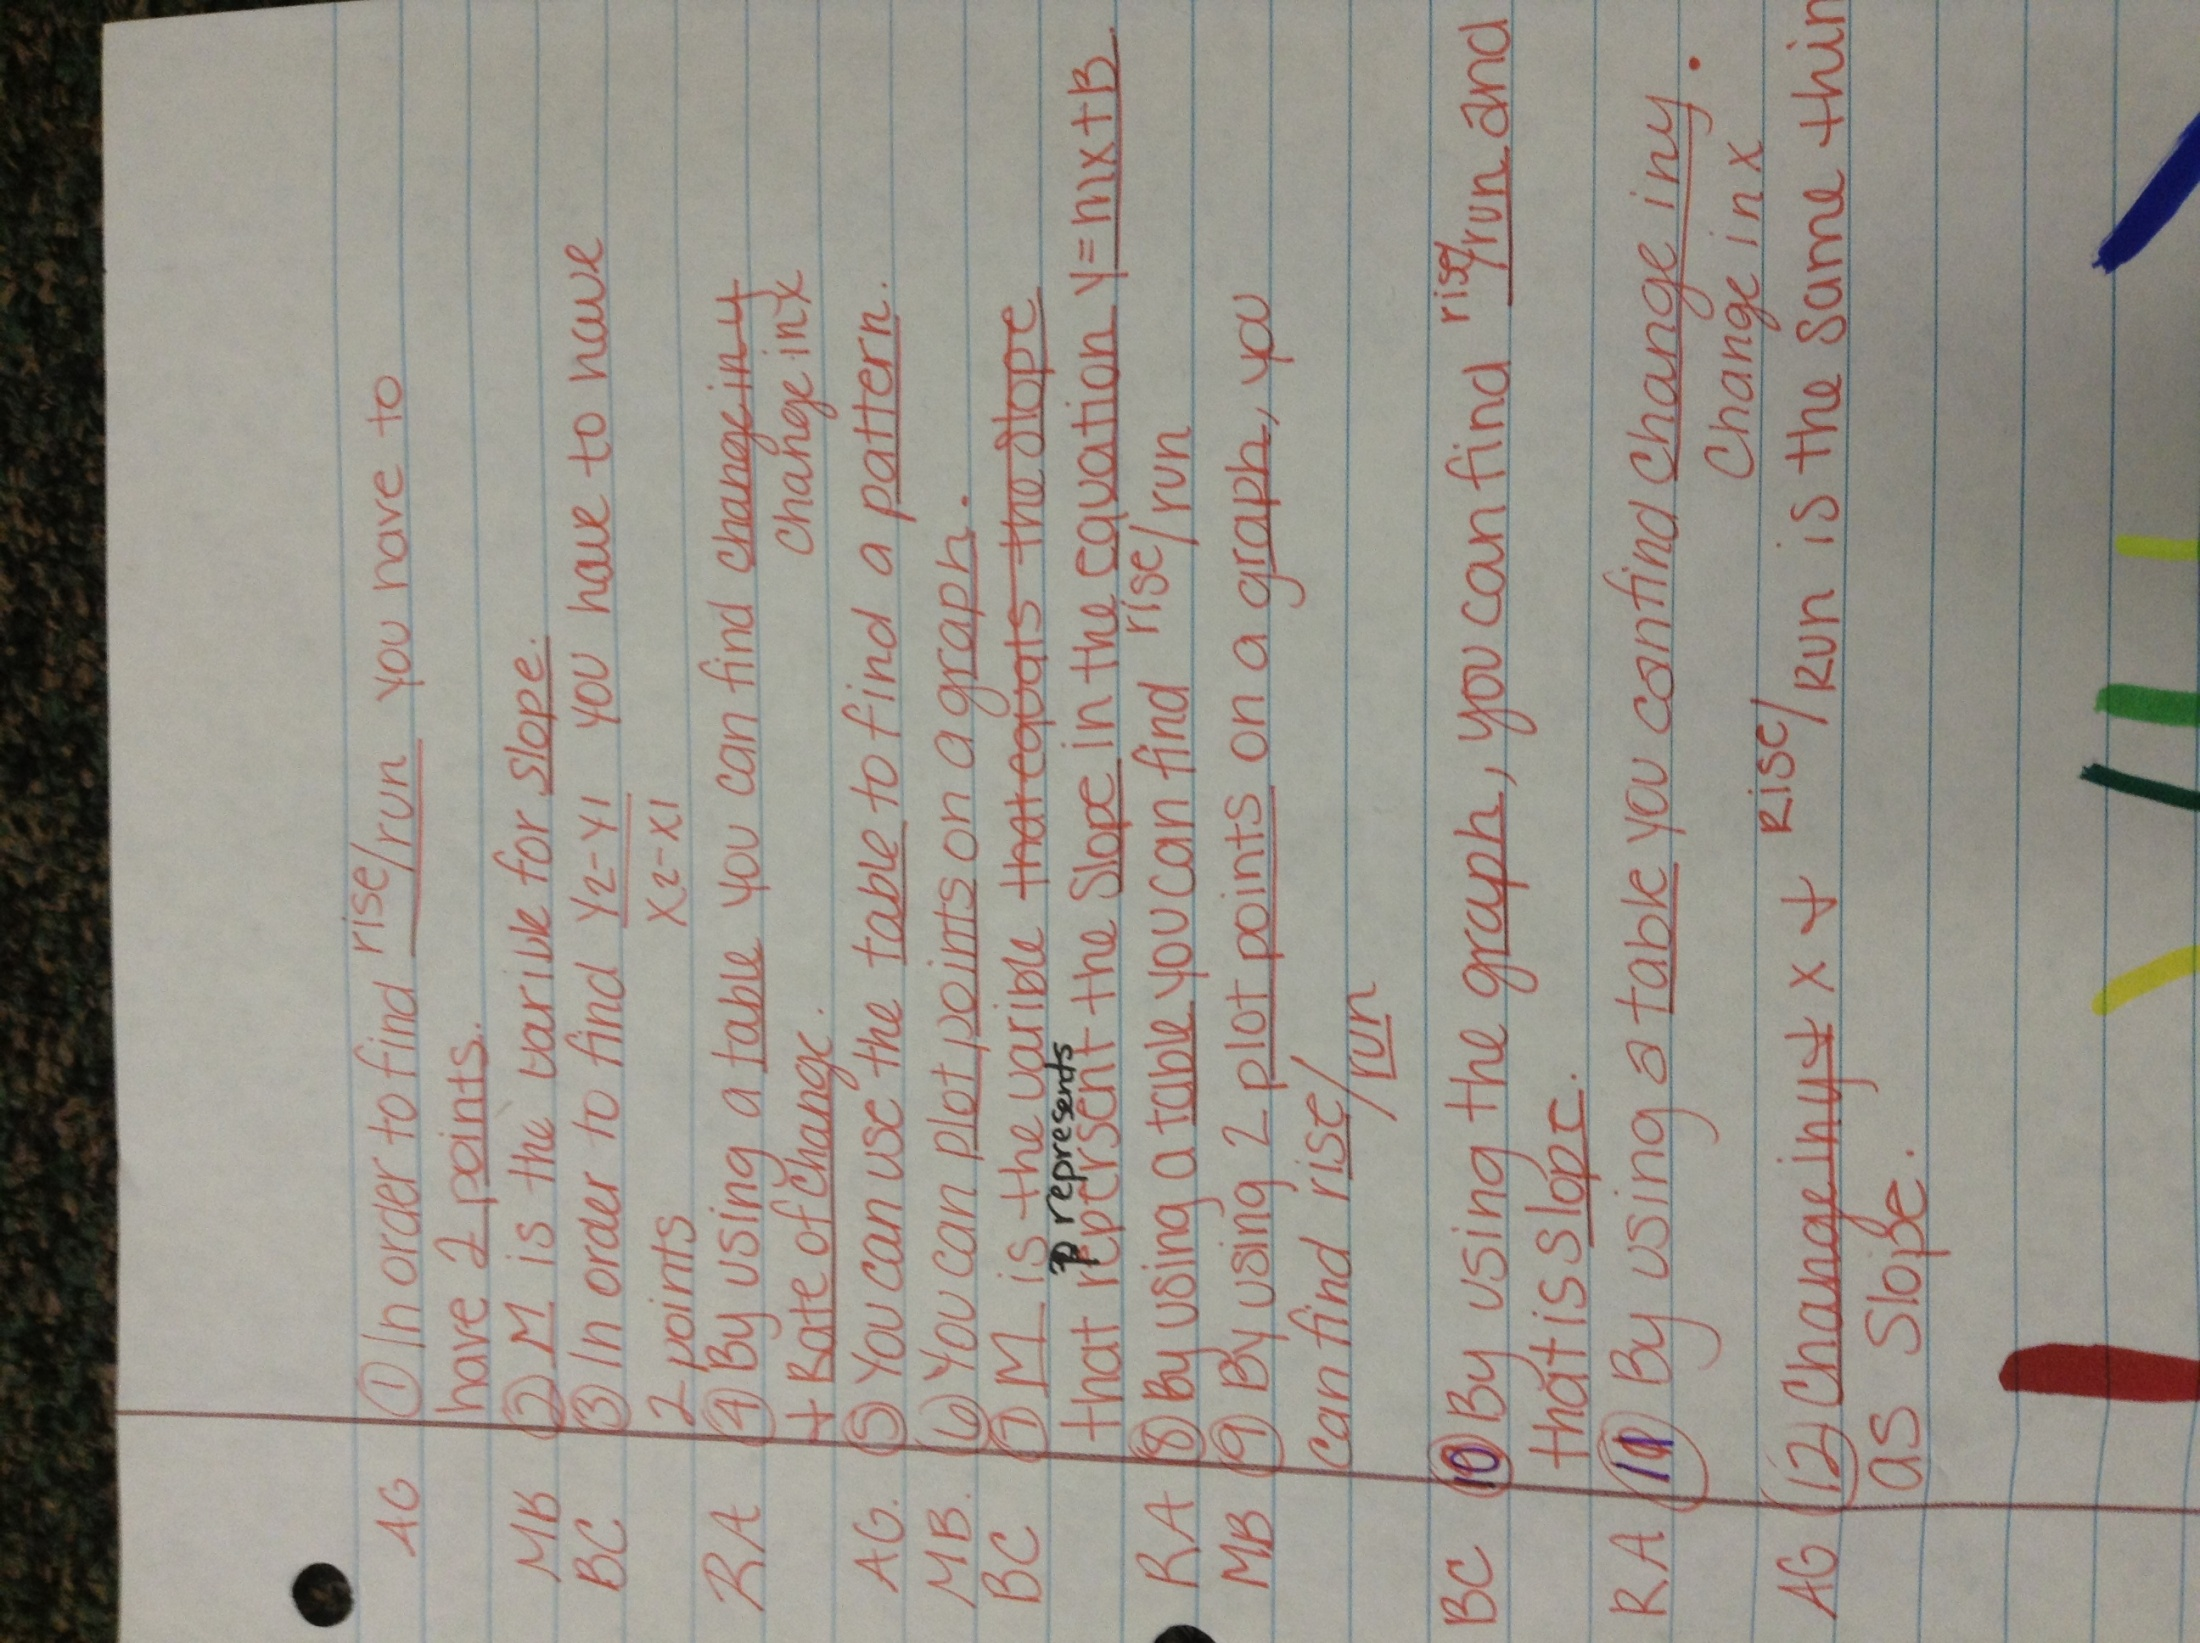 AG ① In order to find rise/run you have to
have 2 points.
MB ② M is the varible for slope.
BC ③ In order to find y2-y1 you have to have
x2-x1
2 points
RA ④ By using a table you can find change in y
change in x
+ Rate of change.
AG. ⑤ You can use the table to find a pattern.
MB. ⑥ You can plot points on a graph.
BC ⑦ M is the varible that equals the slope
represents
that repersent the slope in the equation y=mx+B.
RA ⑧ By using a table you can find rise/run
MB ⑨ By using 2 plot points on a graph, you
can find rise/run
BC ⑩ By using the graph, you can find rise/run and
that is slope.
RA ⑪ By using a table you can find change in y.
Change in x
AG ⑫ Change in y + x + Rise/Run is the same thin
as Slope.